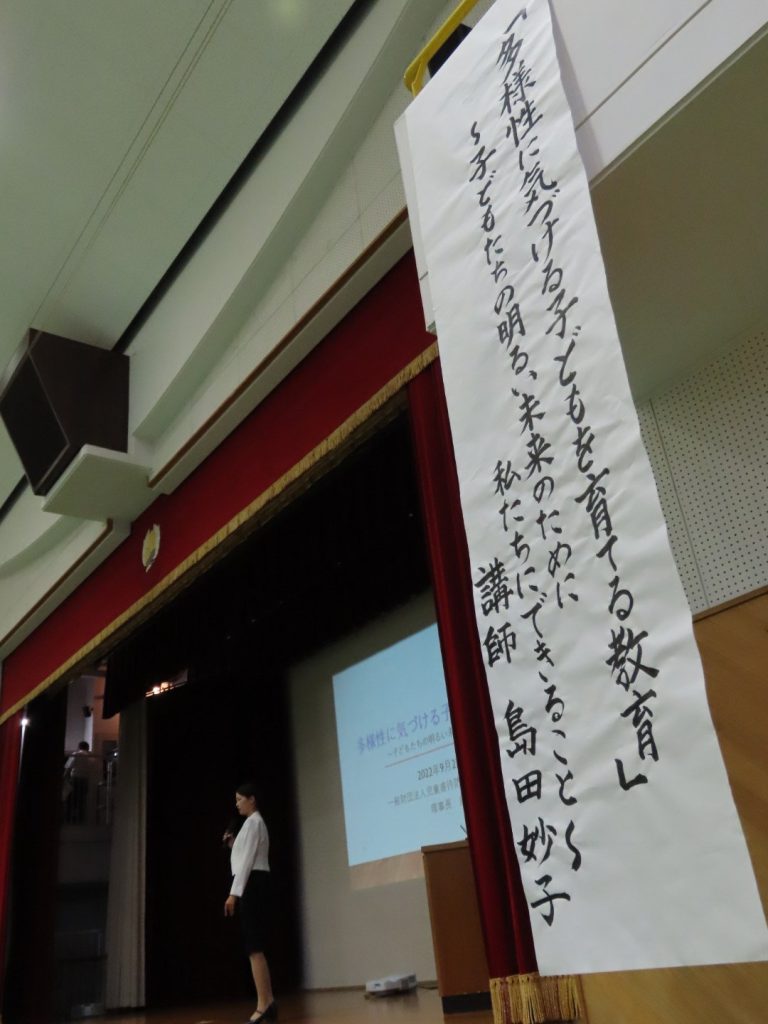 「多様性に気づける子どもを育てる教育」
~子どもたちの明るい未来のために
私たちにできること~
講師 島田妙子
多様性に気づける子
~子どもたちの明るい
2022年9月2
一般財団法人児童虐待防
理事長